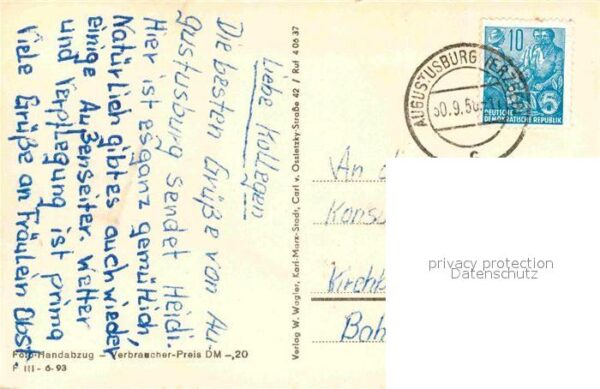 Liebe Kollegen
Die besten Grüße von Au-
gustusburg sendet Heidi.
Hier ist es ganz gemütlich,
Natürlich gibt es auch wieder
einige Außenseiter. Wetter
und Verpflegung ist prima
Viele Grüße an Fräulein Obst.
Foto-Handabzug – Verbraucher-Preis DM –,20
F III - 6 - 93
Verlag W. Wagler, Karl-Marx-Stadt, Carl v. Ossietzky-Straße 42 / Ruf 4 06 37
10
5
DEUTSCHE
DEMOKRATISCHE REPUBLIK
AUGUSTUSBURG (ERZGEB)
c
An
Konsu
Kirchb
Bah
privacy protection
Datenschutz